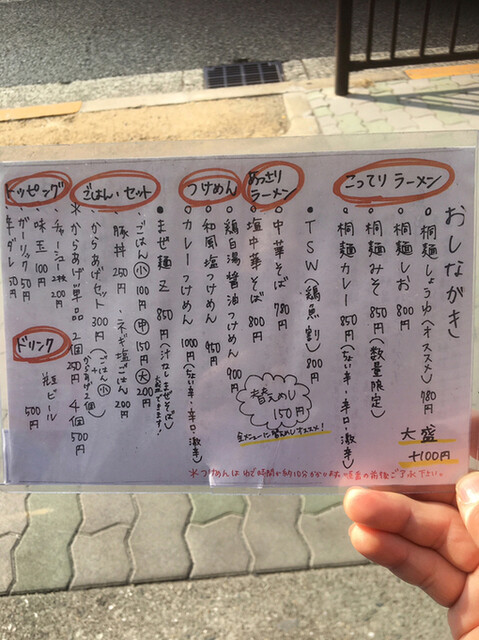 おしながき
こってりラーメン
● 桐麺しょうゆ(オススメ) 780円
● 桐麺しお 800円
● 桐麺みそ 850円(数量限定)
● 桐麺カレー 850円(ちょい辛・辛口・激辛)
大盛
+100円
● TSW(鶏魚割) 800円
あっさりラーメン
● 中華そば 780円
● 塩中華そば 800円
替えめし
150円
全メニューに替えめしオススメ!
つけめん
● 鶏白湯醤油つけめん 900円
● 和風塩つけめん 950円
● カレーつけめん 1000円(ちょい辛・辛口・激辛)
※つけめんはゆで時間が約10分かかります。
ご了承下さい。
● まぜ麺Z 850円(汁なしまぜそば)
大盛できます!
ごはん・セット
・ごはん 小 100円 中 150円 大 200円
・豚丼 250円 ・ネギ塩ごはん 200円
・からあげセット 300円(ごはん小+からあげ2個)
※からあげ単品 2個 250円 4個 500円
トッピング
・チャーシュー2枚 200円
・味玉 100円
・ガーリック 50円
・辛ダレ 50円
ドリンク
・瓶ビール 500円